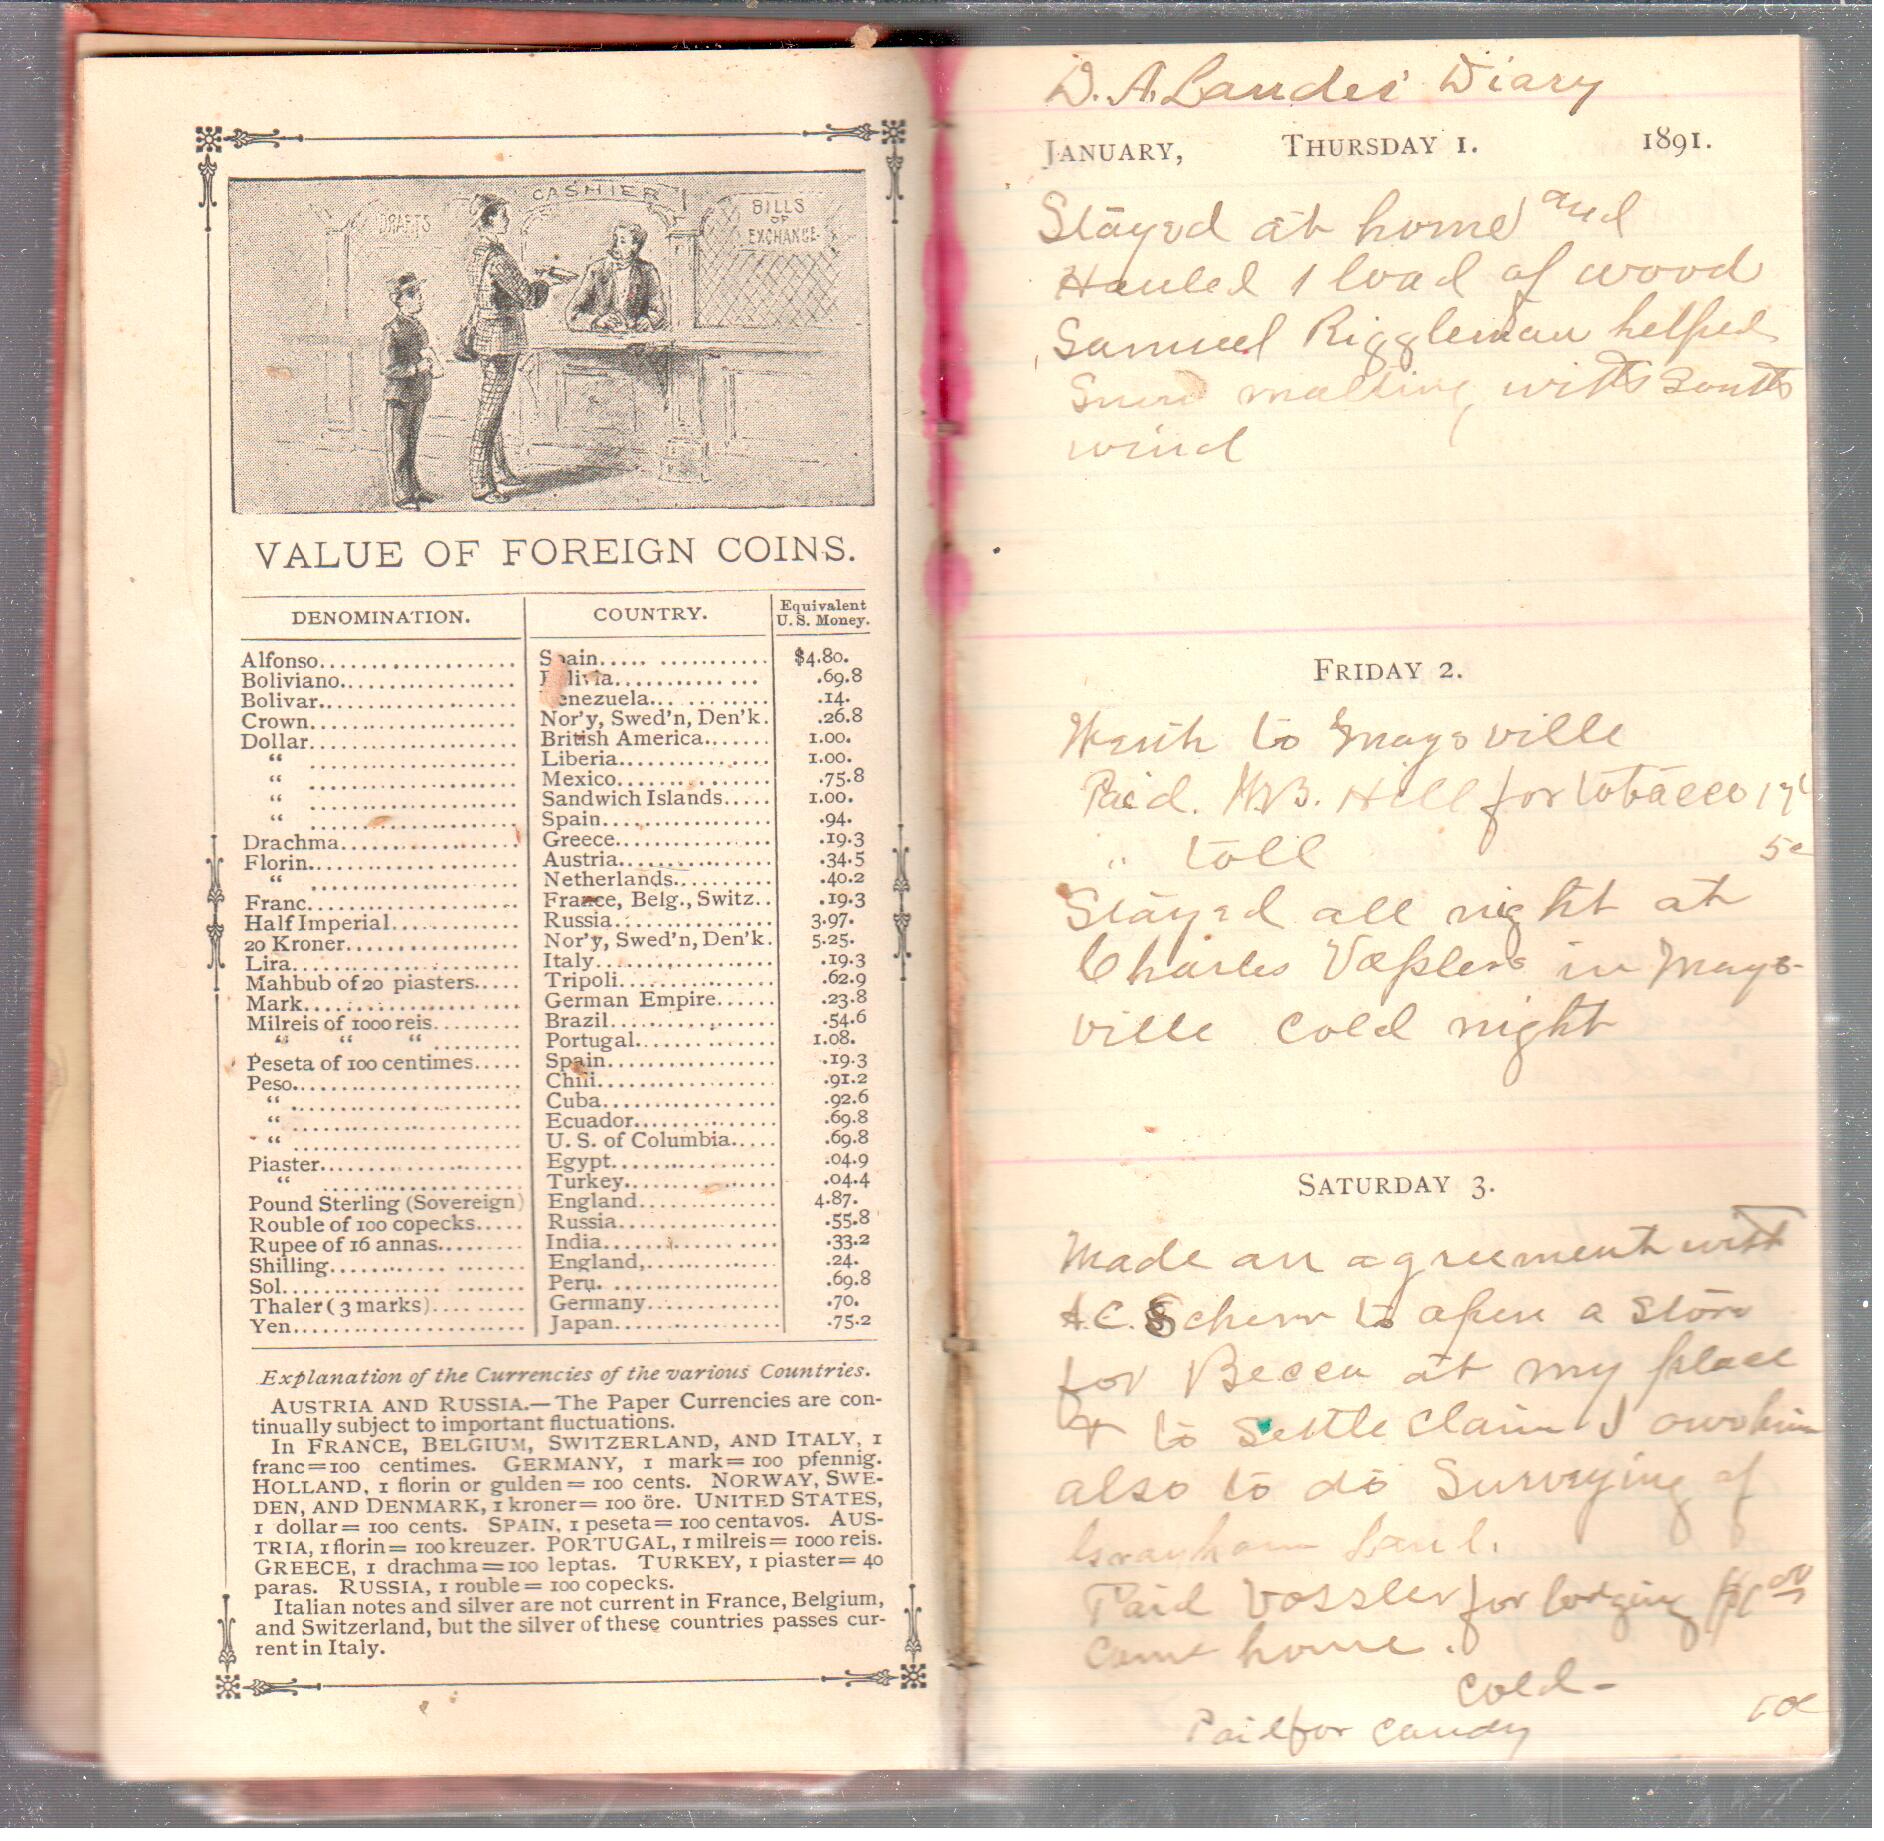 DRAFTS
CASHIER
BILLS
OF
EXCHANGE
VALUE OF FOREIGN COINS.
DENOMINATION. COUNTRY. Equivalent U. S. Money.
Alfonso.................... Spain..... ............ $4.80.
Boliviano.................. Bolivia............... .69.8
Bolivar.................... Venezuela............ .14.
Crown.................... Nor'y, Swed'n, Den'k. .26.8
Dollar.................... British America....... 1.00.
“ .................... Liberia............... 1.00.
“ .................... Mexico............... .75.8
“ .................... Sandwich Islands..... 1.00.
“ .................... Spain................ .94.
Drachma.................. Greece............... .19.3
Florin.................... Austria............... .34.5
“ .................... Netherlands.......... .40.2
Franc.................... France, Belg., Switz.. .19.3
Half Imperial............. Russia............... 3.97.
20 Kroner................. Nor'y, Swed'n, Den'k. 5.25.
Lira...................... Italy................. .19.3
Mahbub of 20 piasters..... Tripoli............... .62.9
Mark..................... German Empire...... .23.8
Milreis of 1000 reis......... Brazil................ .54.6
“ “ “ ......... Portugal.............. 1.08.
Peseta of 100 centimes..... Spain................ .19.3
Peso...................... Chili................. .91.2
“ ...................... Cuba................. .92.6
“ ...................... Ecuador.............. .69.8
“ ...................... U. S. of Columbia..... .69.8
Piaster.................... Egypt................ .04.9
“ .................... Turkey............... .04.4
Pound Sterling (Sovereign) England.............. 4.87.
Rouble of 100 copecks..... Russia............... .55.8
Rupee of 16 annas......... India................. .33.2
Shilling................... England,............. .24.
Sol....................... Peru. ................ .69.8
Thaler (3 marks).......... Germany............. .70.
Yen...................... Japan................ .75.2
Explanation of the Currencies of the various Countries.
AUSTRIA AND RUSSIA.—The Paper Currencies are con-
tinually subject to important fluctuations.
In FRANCE, BELGIUM, SWITZERLAND, AND ITALY, 1
franc=100 centimes. GERMANY, 1 mark=100 pfennig.
HOLLAND, 1 florin or gulden=100 cents. NORWAY, SWE-
DEN, AND DENMARK, 1 kroner= 100 öre. UNITED STATES,
1 dollar= 100 cents. SPAIN, 1 peseta=100 centavos. AUS-
TRIA, 1 florin= 100 kreuzer. PORTUGAL, 1 milreis= 1000 reis.
GREECE, 1 drachma=100 leptas. TURKEY, 1 piaster= 40
paras. RUSSIA, 1 rouble= 100 copecks.
Italian notes and silver are not current in France, Belgium,
and Switzerland, but the silver of these countries passes cur-
rent in Italy.
D. A. Landes' Diary
JANUARY, THURSDAY 1. 1891.
Stayed at home and
Hauled 1 load of wood
Samuel Riggleman helped
Snow malting with South
wind
FRIDAY 2.
Went to Maysville
Paid. Hill for tobacco
" toll 5c
Stayed all night at
Charles Vosslers in Mays-
ville cold night
SATURDAY 3.
Made an agreement with
A. C. Scherr to open a store
for Becca at my place
& to Settle Claim I owe him
also to do Surveying of
Land.
Paid Vossler for lodging $1.00
Came home.
Cold-
Paid for candy 10c